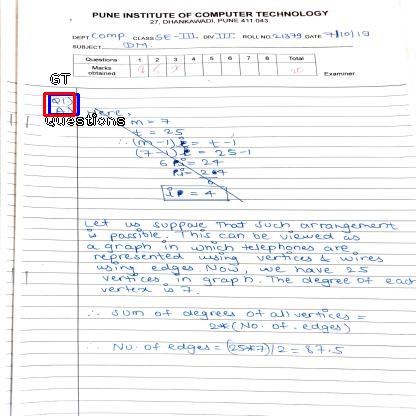 PUNE INSTITUTE OF COMPUTER TECHNOLOGY
27, DHANKAWADI, PUNE 411 043.
DEPT Comp CLASS SE-III DIV III ROLL NO 21379 DATE 7/10/19
SUBJECT DM
Questions 1 2 3 4 5 6 7 8 Total
Marks obtained Examiner
GT
Q1)
A)
Questions
Here,
m = 7
t = 25
∴ (m-1) = t-1
(7-1) = 25-1
= 24
= 4
Let us suppose that such arrangement
is possible. This can be viewed as
a graph in which telephones are
represented using vertices & wires
using edges. Now, we have 25
vertices in graph. The degree of each
vertex is 7.
∴ Sum of degrees of all vertices =
2*(No. of. edges)
∴ No. of edges = (25*7)/2 = 87.5